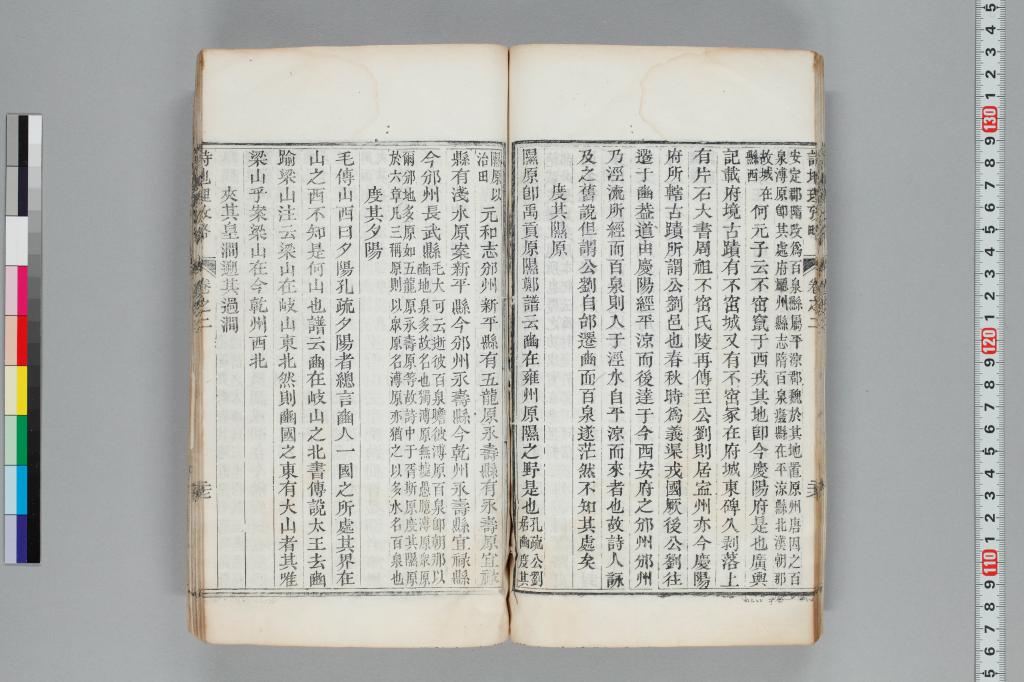 安定郡隋改爲百泉縣屬平涼郡魏於其地置原州唐因之百
泉溥原卽其處府州縣志隋百泉舊縣在平涼縣北漢朝那
故城在
縣西
何元子云不窋竄于西戎其地卽今慶陽府是也廣輿
記載府境古蹟有不窋城又有不窋冢在府城東碑久剥落上
有片石大書周祖不窋氏陵再傳至公劉則居寍州亦今慶陽
府所轄古蹟所謂公劉邑也春秋時爲義渠戎國厥後公劉徃
遷于豳葢道由慶陽經平涼而後達于今西安府之邠州邠州
乃涇流所經而百泉則入于涇水自平涼而來者也故詩人詠
及之舊說但謂公劉自邰遷豳而百泉遂茫然不知其處矣
度其隰原
隰原卽禹貢原隰鄭譜云豳在雍州原隰之野是也
孔疏公劉
居豳度其
隰原以
治田
元和志邠州新平縣有五龍原永壽縣有永壽原宜祿
縣有淺水原案新平縣今邠州永壽縣今乾州永壽縣宜祿縣
今邠州長武縣
毛大可云逝彼百泉瞻彼溥原百泉卽朝那以
豳地泉多故名也獨溥原無據愚臆溥原衆原
爾邠地多原如五龍原永壽原等故詩中于胥斯原度其隰原
於六章凡三稱原則以衆原名溥原亦猶之以多水名百泉也
度其夕陽
毛傳山西曰夕陽孔疏夕陽者總言豳人一國之所處其界在
山之西不知是何山也譜云豳在岐山之北書傳說太王去豳
踰梁山注云梁山在岐山東北然則豳國之東有大山者其唯
梁山乎案梁山在今乾州西北
夾其皇澗遡其過澗
詩地理攷略
卷之二